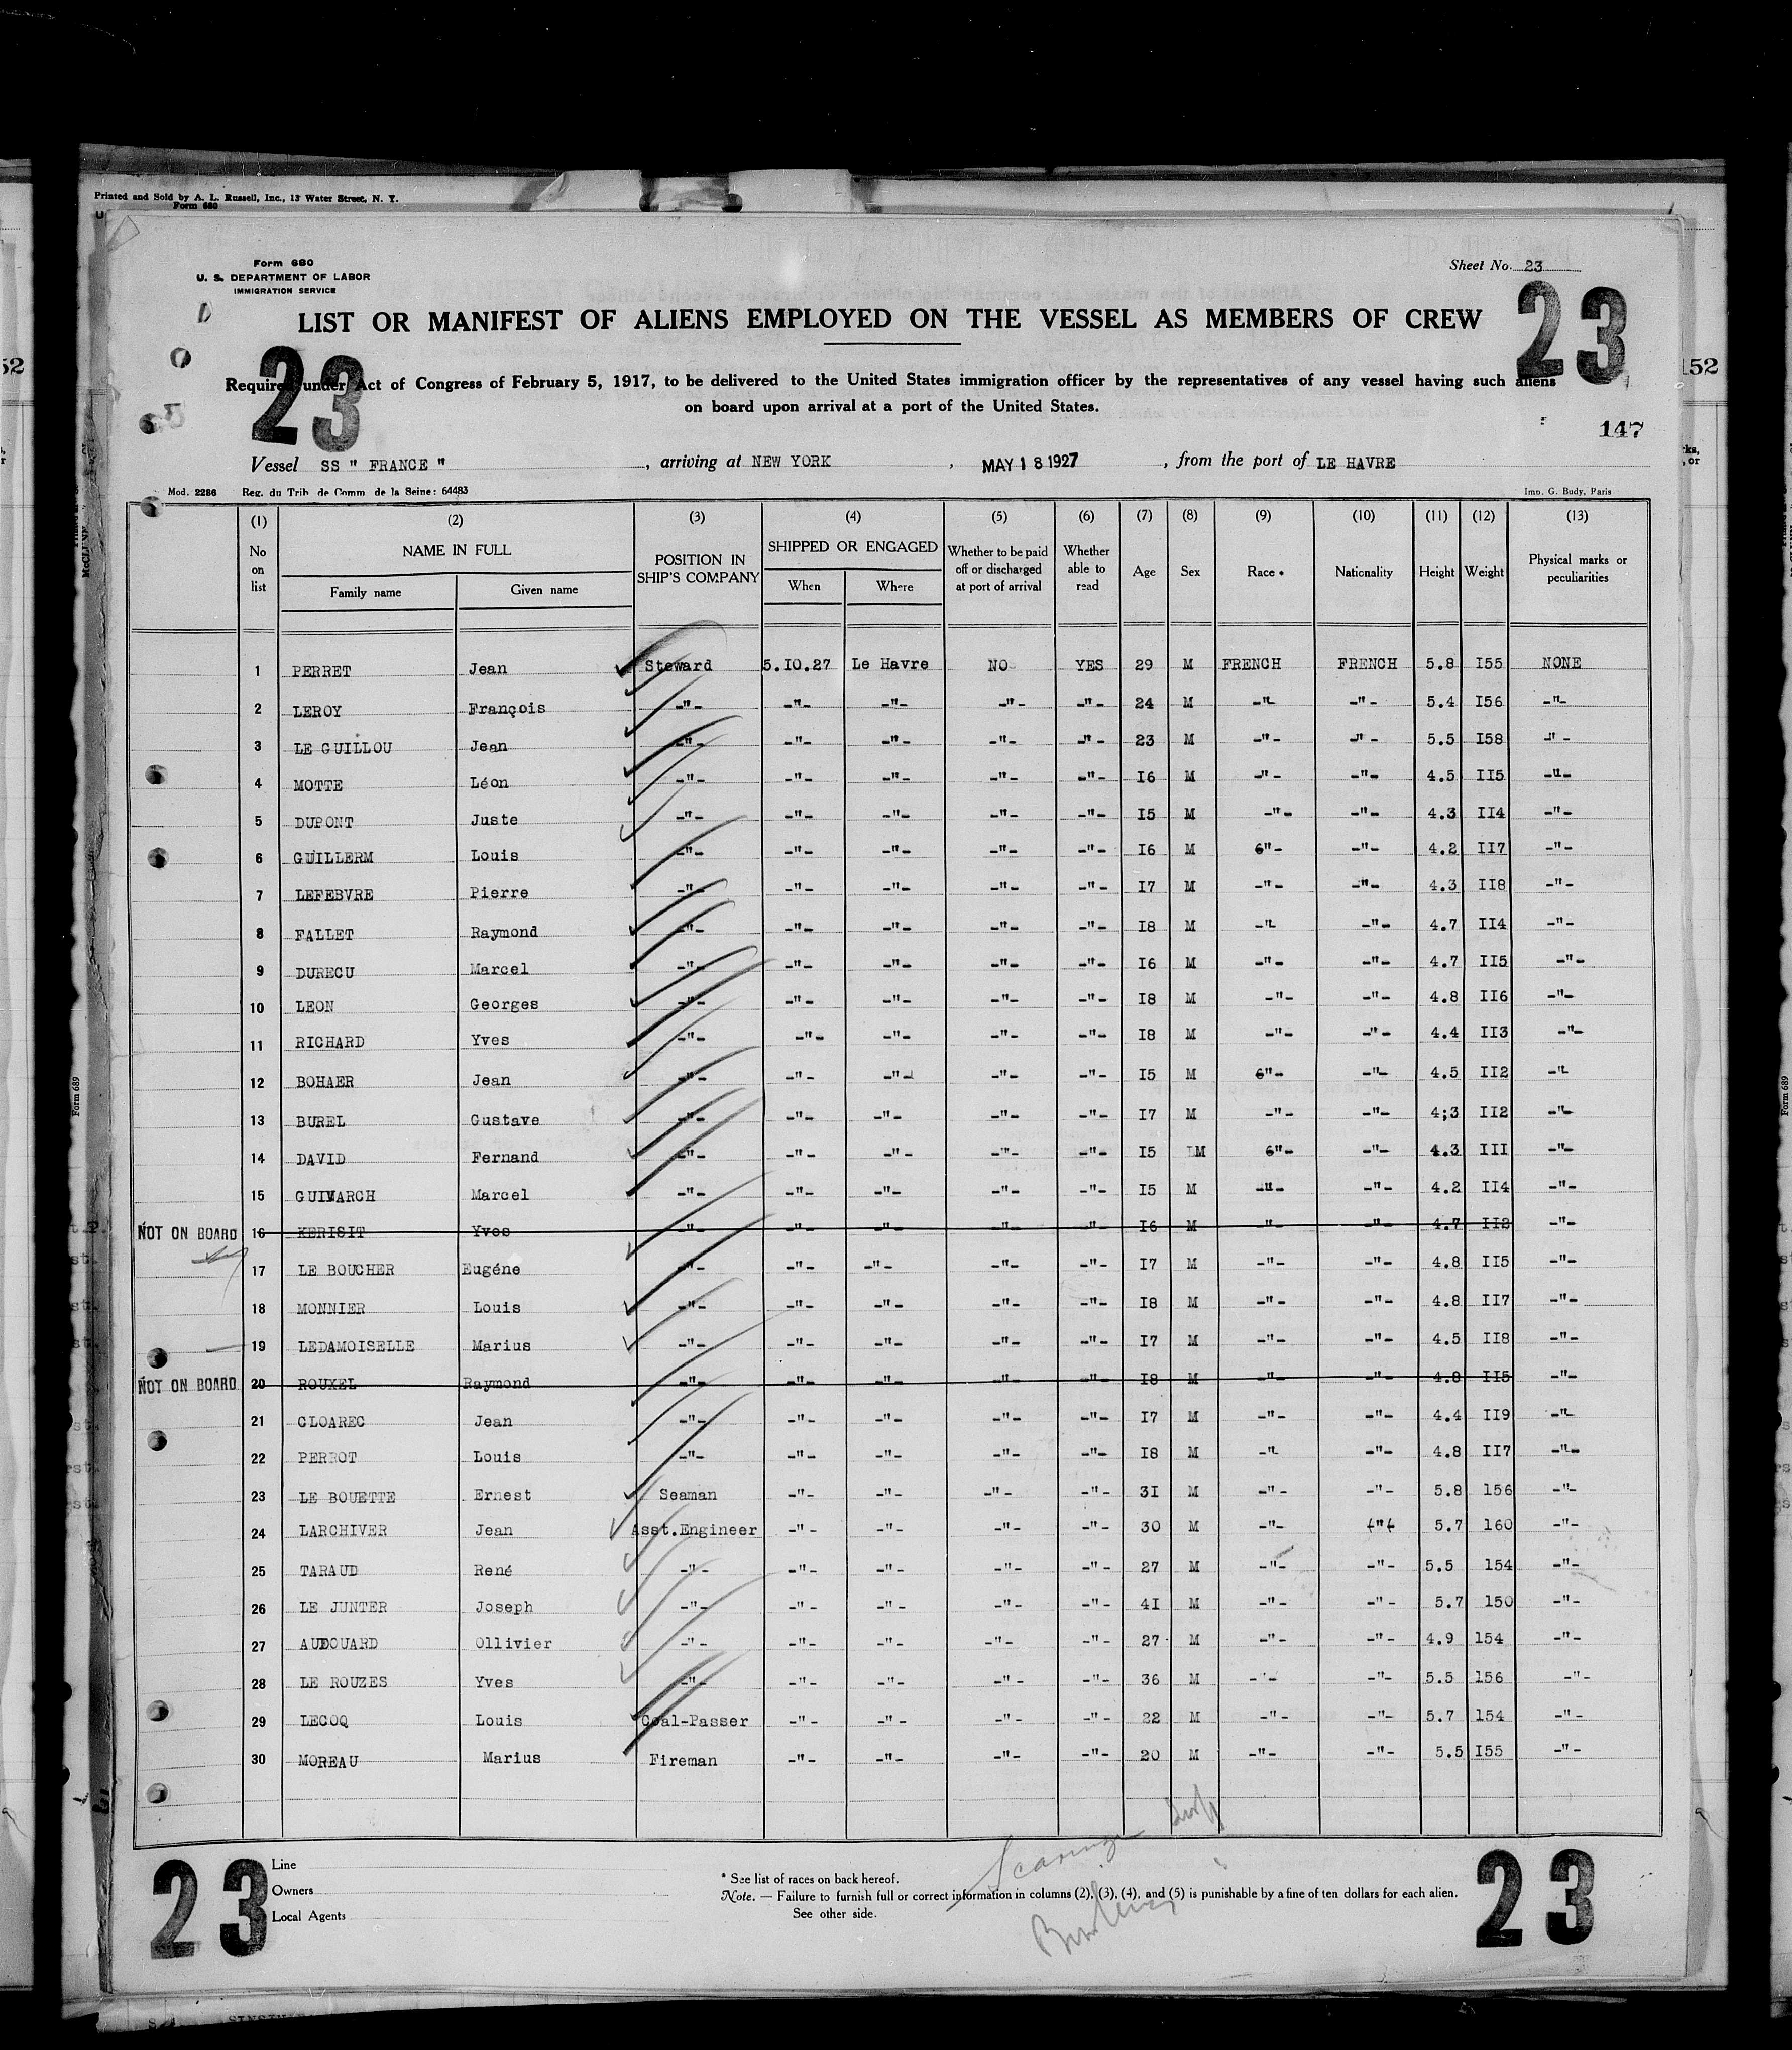 Printed and Sold by A. L. Russell, Inc., 13 Water Street, N. Y.
Form 680
Form 680
U. S. DEPARTMENT OF LABOR
IMMIGRATION SERVICE
Sheet No. 23
LIST OR MANIFEST OF ALIENS EMPLOYED ON THE VESSEL AS MEMBERS OF CREW
23
23
Required under Act of Congress of February 5, 1917, to be delivered to the United States immigration officer by the representatives of any vessel having such aliens
on board upon arrival at a port of the United States.
147
Vessel SS " FRANCE " , arriving at NEW YORK , MAY 18 1927 , from the port of LE HAVRE
Mod. 2286 Reg. du Trib. de Comm. de la Seine: 64483 Imp. G. Budy, Paris
(1) (2) (3) (4) (5) (6) (7) (8) (9) (10) (11) (12) (13)
No on list NAME IN FULL Family name Given name POSITION IN SHIP'S COMPANY SHIPPED OR ENGAGED When Where Whether to be paid off or discharged at port of arrival Whether able to read Age Sex Race * Nationality Height Weight Physical marks or peculiarities
1 PERRET Jean Steward 5.IO.27 Le Havre NO YES 29 M FRENCH FRENCH 5.8 I55 NONE
2 LEROY François -"- -"- -"- -"- -"- 24 M -"- -"- 5.4 I56 -"-
3 LE GUILLOU Jean -"- -"- -"- -"- -"- 23 M -"- -"- 5.5 I58 -"-
4 MOTTE Léon -"- -"- -"- -"- -"- I6 M -"- -"- 4.5 II5 -"-
5 DUPONT Juste -"- -"- -"- -"- -"- I5 M -"- -"- 4.3 II4 -"-
6 GUILLERM Louis -"- -"- -"- -"- -"- I6 M 6"- -"- 4.2 II7 -"-
7 LEFEBVRE Pierre -"- -"- -"- -"- -"- I7 M -"- -"- 4.3 II8 -"-
8 FALLET Raymond -"- -"- -"- -"- -"- I8 M -"- -"- 4.7 II4 -"-
9 DURECU Marcel -"- -"- -"- -"- -"- I6 M -"- -"- 4.7 II5 -"-
10 LEON Georges -"- -"- -"- -"- -"- I8 M -"- -"- 4.8 II6 -"-
11 RICHARD Yves -"- -"- -"- -"- -"- I8 M -"- -"- 4.4 II3 -"-
12 BOHAER Jean -"- -"- -"- -"- -"- I5 M 6"- -"- 4.5 II2 -"-
13 BUREL Gustave -"- -"- -"- -"- -"- I7 M -"- -"- 4;3 II2 -"-
14 DAVID Fernand -"- -"- -"- -"- -"- I5 M 6"- -"- 4.3 III -"-
15 GUIVARCH Marcel -"- -"- -"- -"- -"- I5 M -"- -"- 4.2 II4 -"-
NOT ON BOARD 16 KERISIT Yves -"- -"- -"- -"- -"- I6 M -"- -"- 4.7 II2 -"-
17 LE BOUCHER Eugéne -"- -"- -"- -"- -"- I7 M -"- -"- 4.8 II5 -"-
18 MONNIER Louis -"- -"- -"- -"- -"- I8 M -"- -"- 4.8 II7 -"-
19 LEDAMOISELLE Marius -"- -"- -"- -"- -"- I7 M -"- -"- 4.5 II8 -"-
NOT ON BOARD 20 ROUXEL Raymond -"- -"- -"- -"- -"- I8 M -"- -"- 4.8 II5 -"-
21 CLOAREC Jean -"- -"- -"- -"- -"- I7 M -"- -"- 4.4 II9 -"-
22 PERROT Louis -"- -"- -"- -"- -"- I8 M -"- -"- 4.8 II7 -"-
23 LE BOUETTE Ernest Seaman -"- -"- -"- -"- 3I M -"- -"- 5.8 156 -"-
24 LARCHIVER Jean Asst.Engineer -"- -"- -"- -"- 30 M -"- ("( 5.7 160 -"-
25 TARAUD René -"- -"- -"- -"- -"- 27 M -"- -"- 5.5 154 -"-
26 LE JUNTER Joseph -"- -"- -"- -"- -"- 4I M -"- -"- 5.7 150 -"-
27 AUDOUARD Ollivier -"- -"- -"- -"- -"- 27 M -"- -"- 4.9 154 -"-
28 LE ROUZES Yves -"- -"- -"- -"- -"- 36 M -"- -"- 5.5 156 -"-
29 LECOQ Louis Coal-Passer -"- -"- -"- -"- 22 M -"- -"- 5.7 154 -"-
30 MOREAU Marius Fireman -"- -"- -"- -"- 20 M -"- -"- 5.5 I55 -"-
23
23
Line
Owners
Local Agents
* See list of races on back hereof.
Note. — Failure to furnish full or correct information in columns (2), (3), (4), and (5) is punishable by a fine of ten dollars for each alien.
See other side.
152
Form 689
Form 689